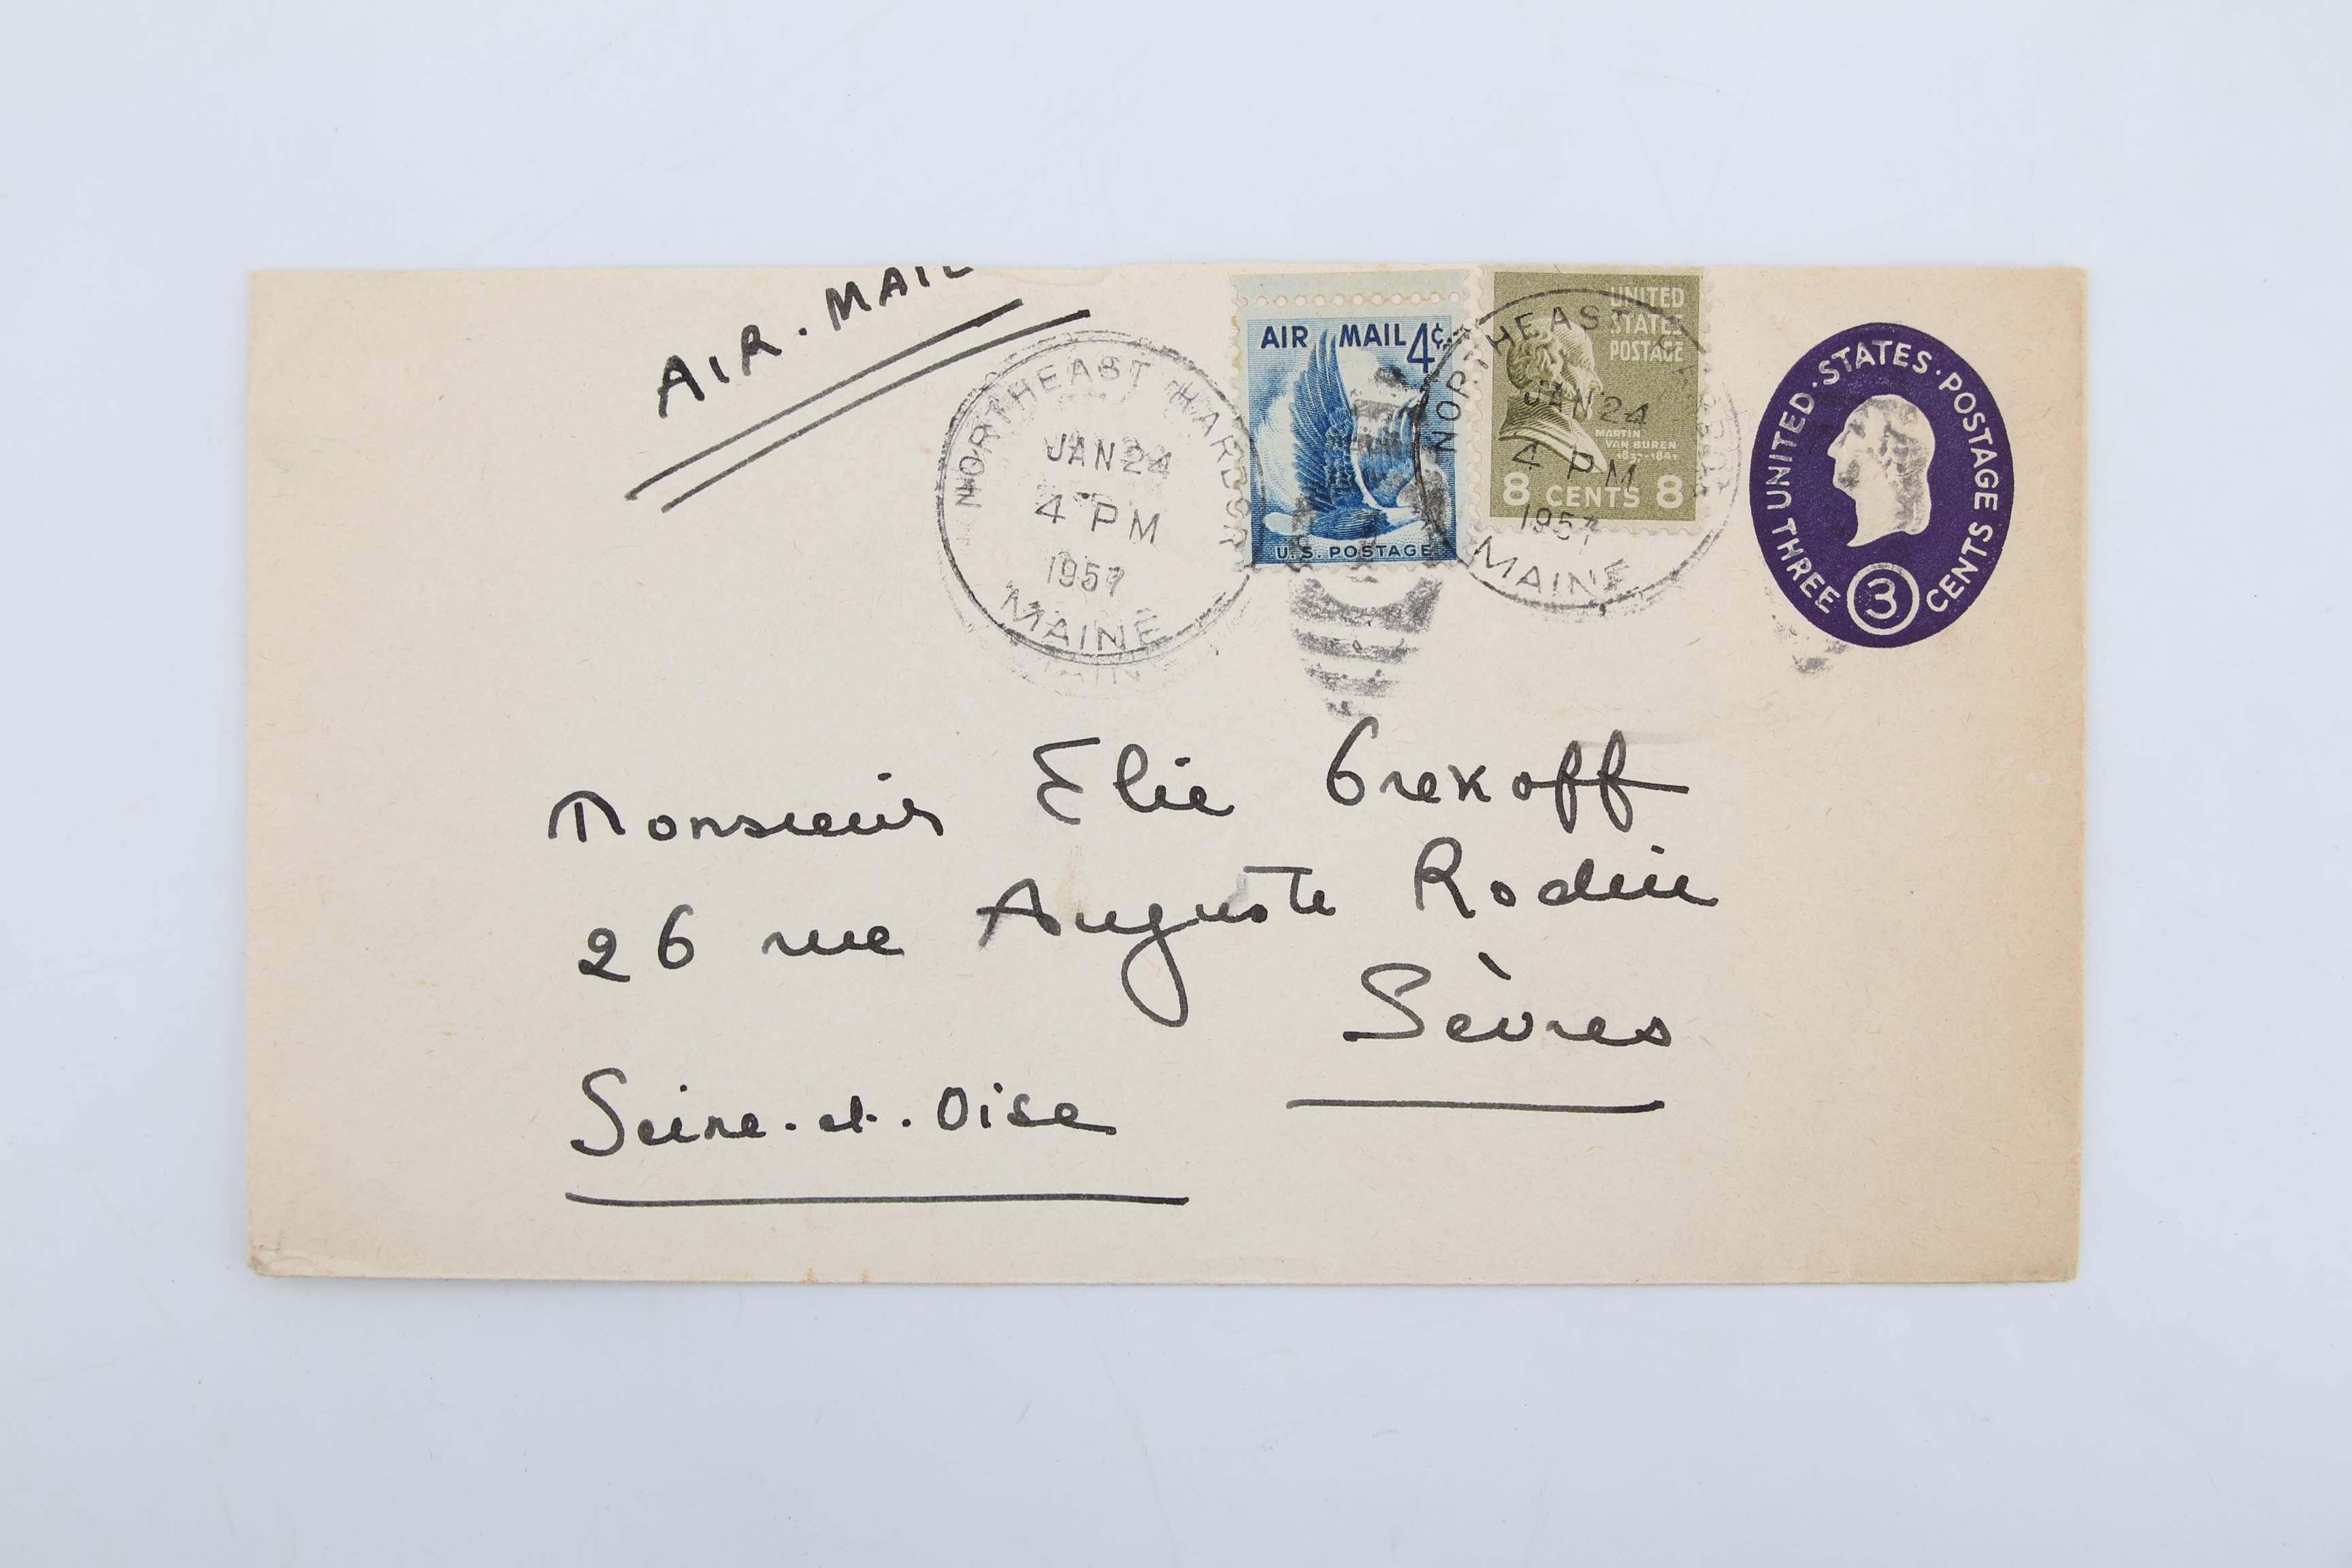 AIR. MAIL
NORTHEAST HARBOR
JAN 24
4 PM
1957
MAINE
AIR MAIL 4¢
U.S. POSTAGE
UNITED
STATES
POSTAGE
MARTIN
VAN BUREN
1837-1841
8 CENTS 8
NORTHEAST HARBOR
JAN 24
4 PM
1957
MAINE
UNITED·STATES·POSTAGE
THREE 3 CENTS
Monsieur Elie Grekoff
26 rue Auguste Rodin
Sèvres
Seine-et-Oise